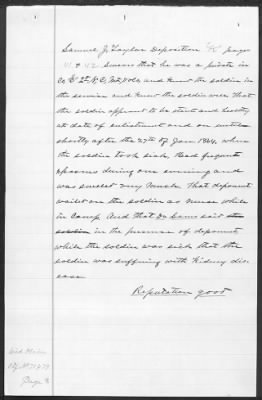 Samuel J. Taylor Deposition "K" page
41 & 42. Swears that he was a private in
Co 2nd N.C. Mtd Vols and knew the soldier in
the service and knew the soldier well. That
the soldier appeared to be stout and hearty
at date of enlistment and on until
shortly after the 27th of Jan 1864, when
the soldier took sick. Had frequent
spasms during one evening and
was swelled very much. That deponent
waited on the soldier as nurse while
in Camp. And that Dr said
soldier in the presence of deponent,
while the soldier was sick that the
soldier was suffering with Kidney dis-
ease
Reputation good
Page 3